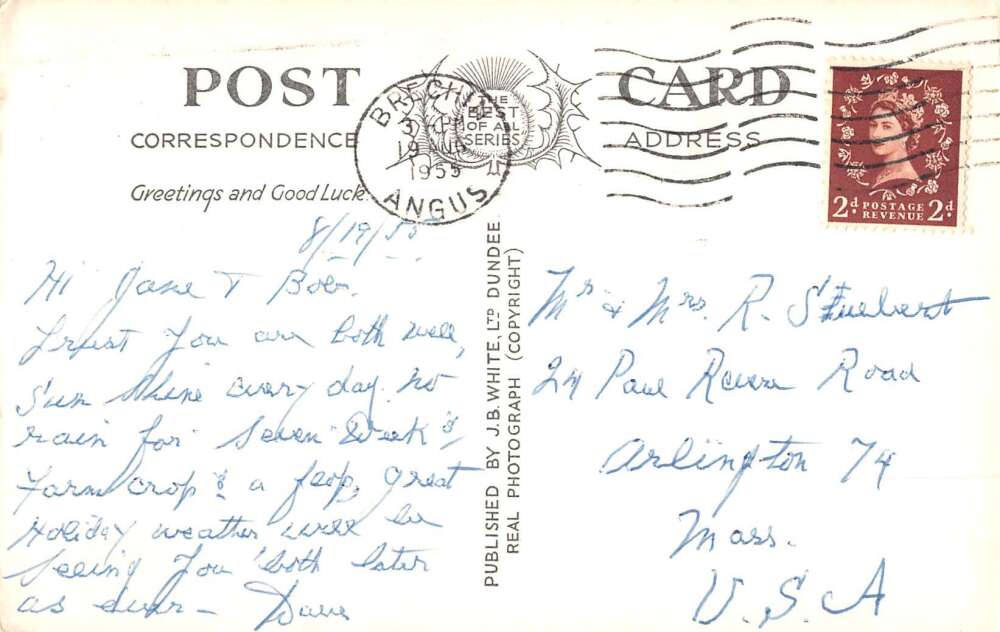 POST CARD
THE
BEST
OF ALL
SERIES
CORRESPONDENCE
ADDRESS
Greetings and Good Luck.
BRECHIN
19
1955
ANGUS
2d POSTAGE REVENUE 2d
8/19/55
Hi Jane & Bob.
Trust You are both well,
Sun Shine every day. no
rain for Seven Week's,
Farm crop's a flop, great
Holiday weather will be
Seeing You both later
as ever - Dave
PUBLISHED BY J.B. WHITE, LTD DUNDEE
REAL PHOTOGRAPH (COPYRIGHT)
Mr & Mrs. R. Stuebert
24 Paul Revere Road
Arlington 74
Mass.
U.S.A